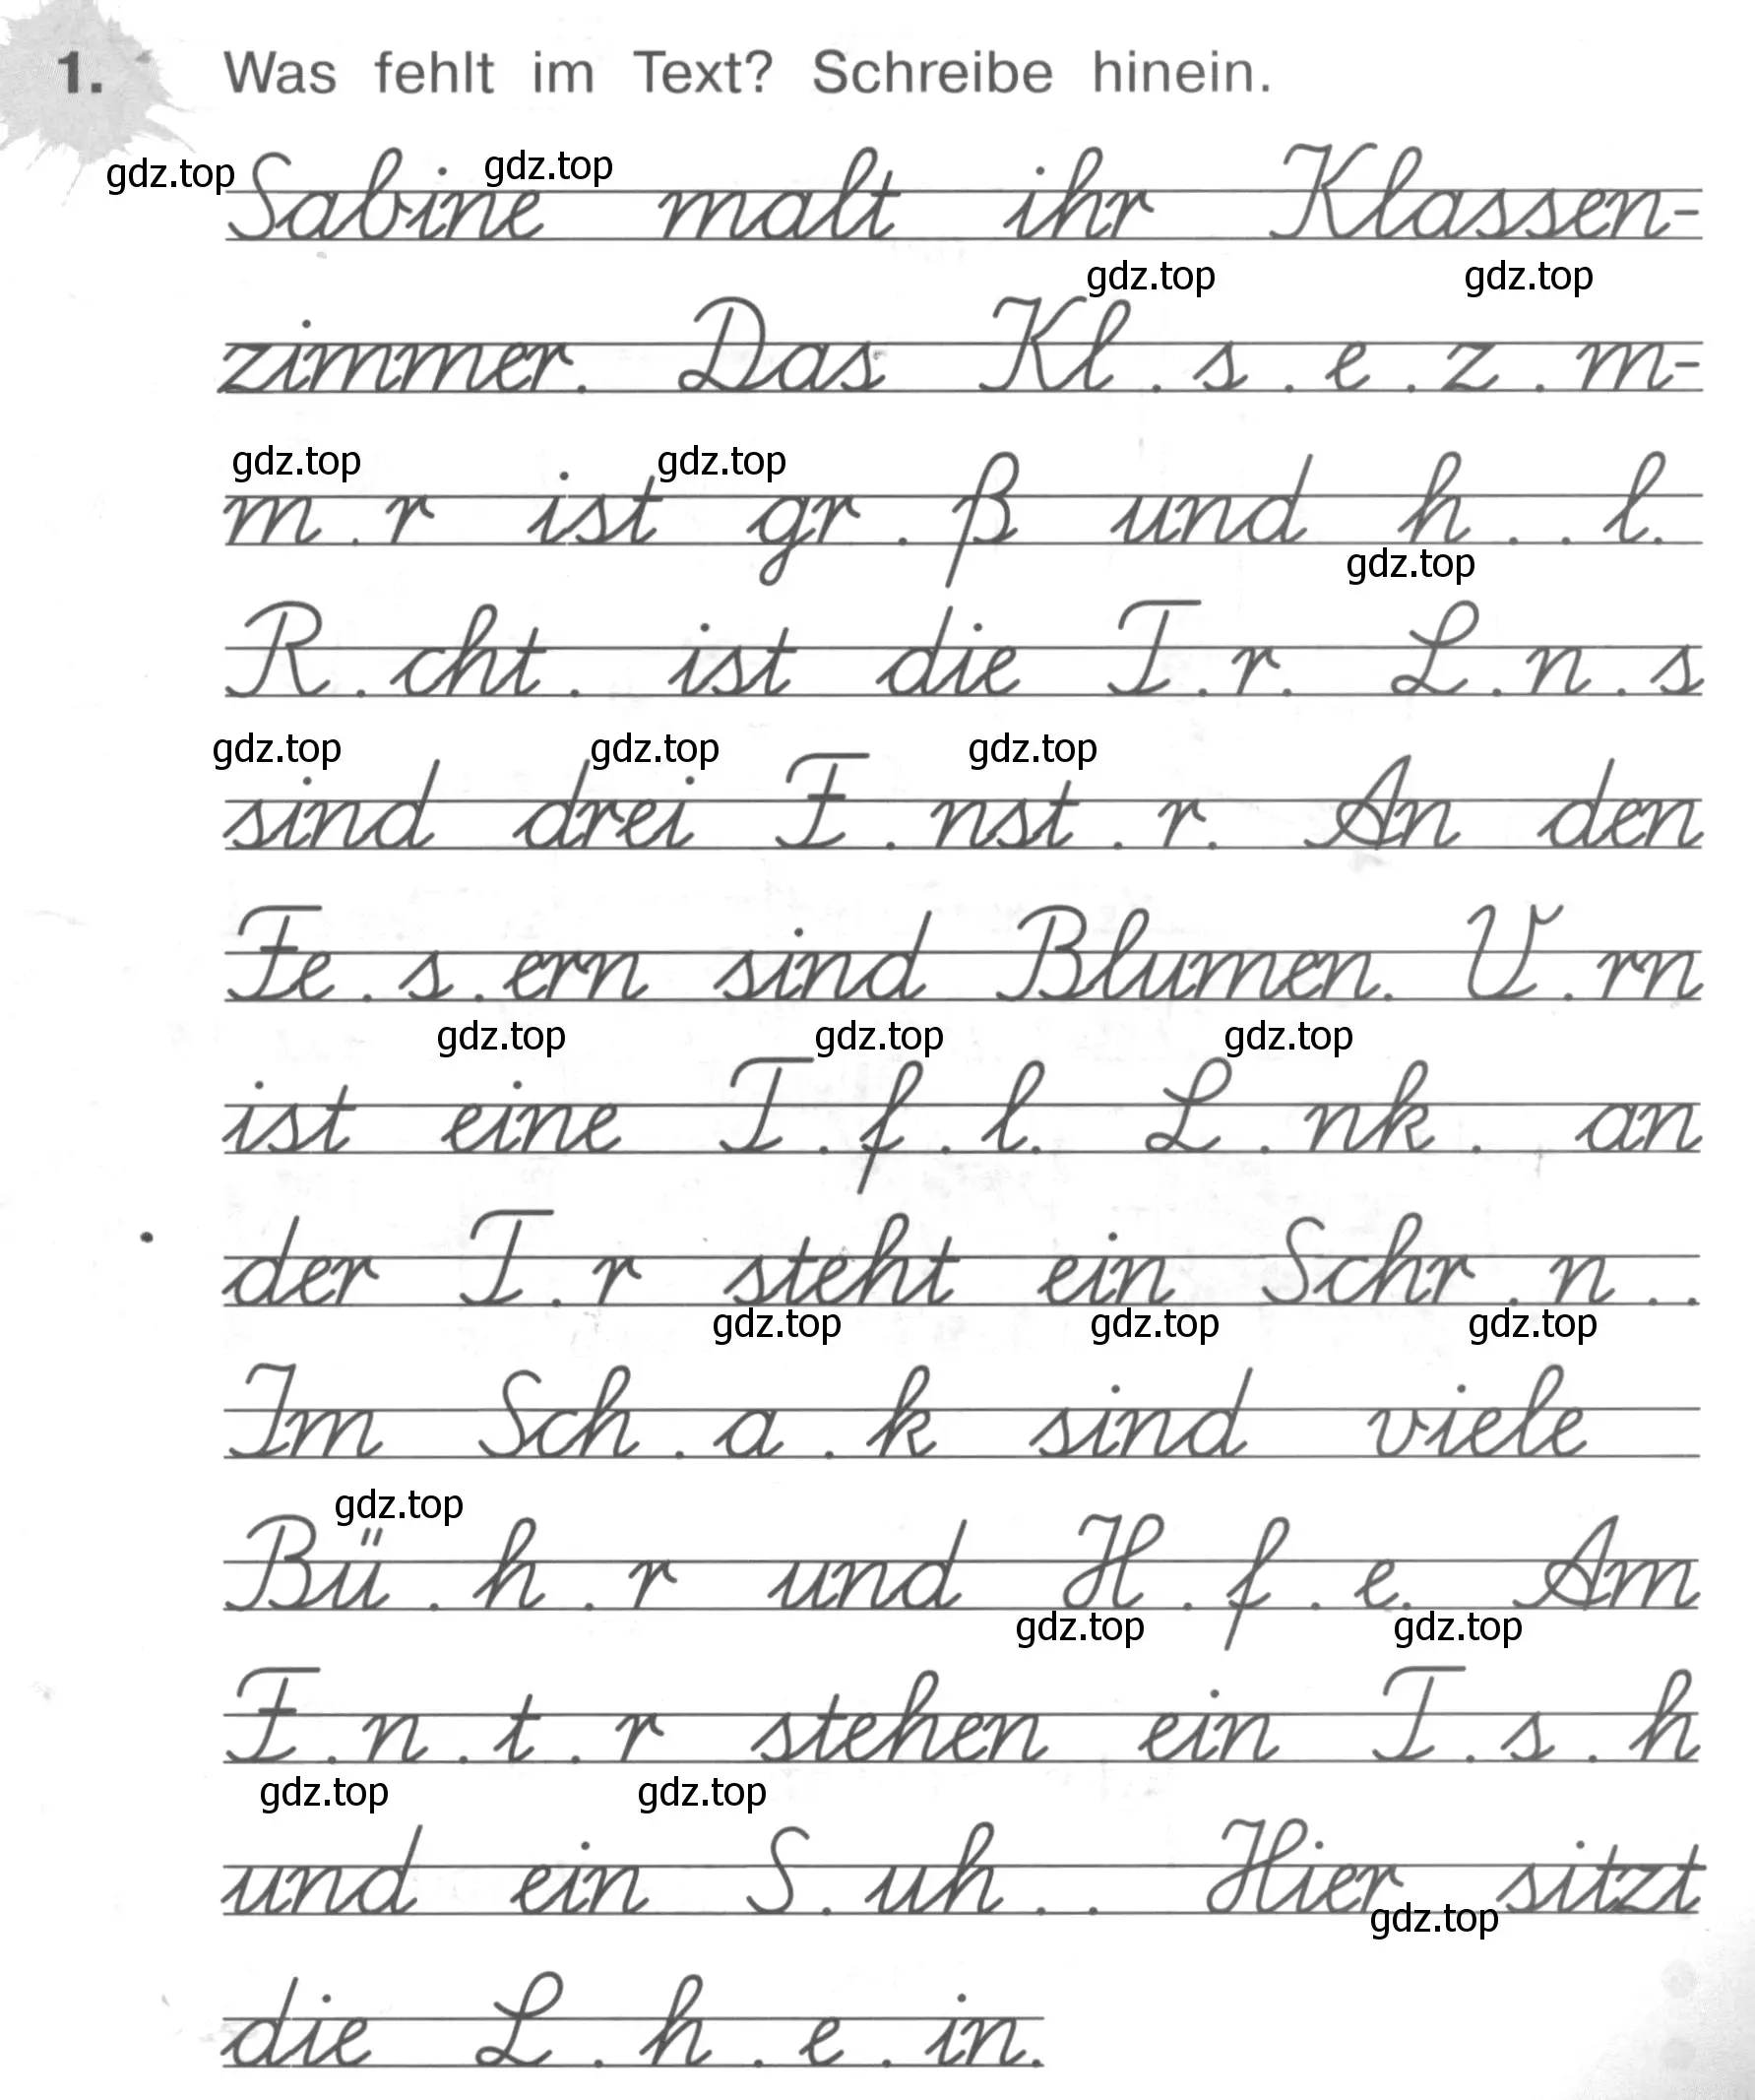 1. Was fehlt im Text? Schreibe hinein.
gdz.top gdz.top
Sabine malt ihr Klassen-
gdz.top gdz.top
zimmer. Das Kl . s . e . z . m-
gdz.top gdz.top
m . r ist gr . ß und h . . l.
gdz.top
R . cht . ist die T . r. L . n . s
gdz.top gdz.top gdz.top
sind drei F . nst . r. An den
Fe . s . ern sind Blumen. V . rn
gdz.top gdz.top gdz.top
ist eine T . f . l. L . nk . an
der T . r steht ein Schr . n . .
gdz.top gdz.top gdz.top
Im Sch . a . k sind viele
gdz.top
Bü . h . r und H . f . e. Am
gdz.top gdz.top
F . n . t . r stehen ein T . s . h
gdz.top gdz.top
und ein S . uh . . Hier sitzt
gdz.top
die L . h . e . in.